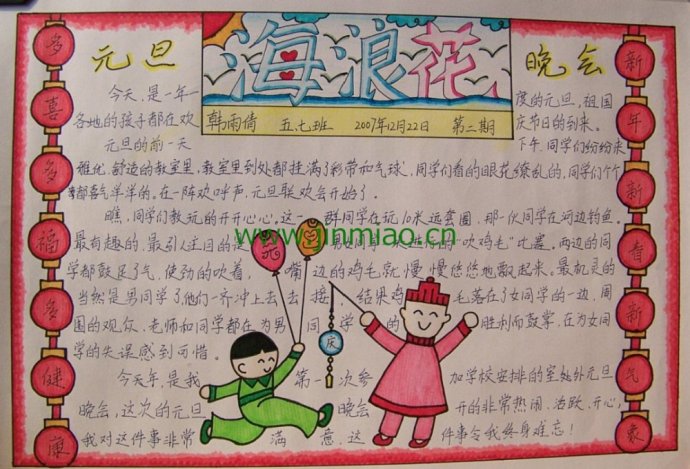 海浪花
元旦
晚会
韩雨倩 五.七班 2007年12月22日 第二期
多喜多福多健康
新年新看新气象
今天,是一年一 度的元旦,祖国
各地的孩子都在欢 庆节日的到来。
元旦的前一天 下午,同学们纷纷来
雅优,舒适的教室里,教室里到处都挂满了彩带和气球,同学们看的眼花缭乱的,同学们个个
都喜气洋洋的。在一阵欢呼声,元旦联欢会开始了。
瞧,同学们教玩的开开心心。这一群同学在玩10米运套圈,那一伙同学在河边钓鱼。
最有趣的,最引人主目的是 "吹鸡毛"比塞。两边的同
学都鼓足了气,使劲的吹着, 嘴边的鸡毛就慢慢悠悠地飘起来。最机灵的
当然是男同学了他们一齐冲上去去接,结果鸡毛落在了女同学的一边,周
围的观众、老师和同学都在为男同学的 胜利而鼓掌,在为女同
学的失误感到可惜。
今天年,是我第一次参加学校安排的室处外元旦
晚会,这次的元旦晚会开的非常热闹、活跃、开心,
我对这件事非常满意,这件事令我终身难忘!
庆
www.jinmiao.cn